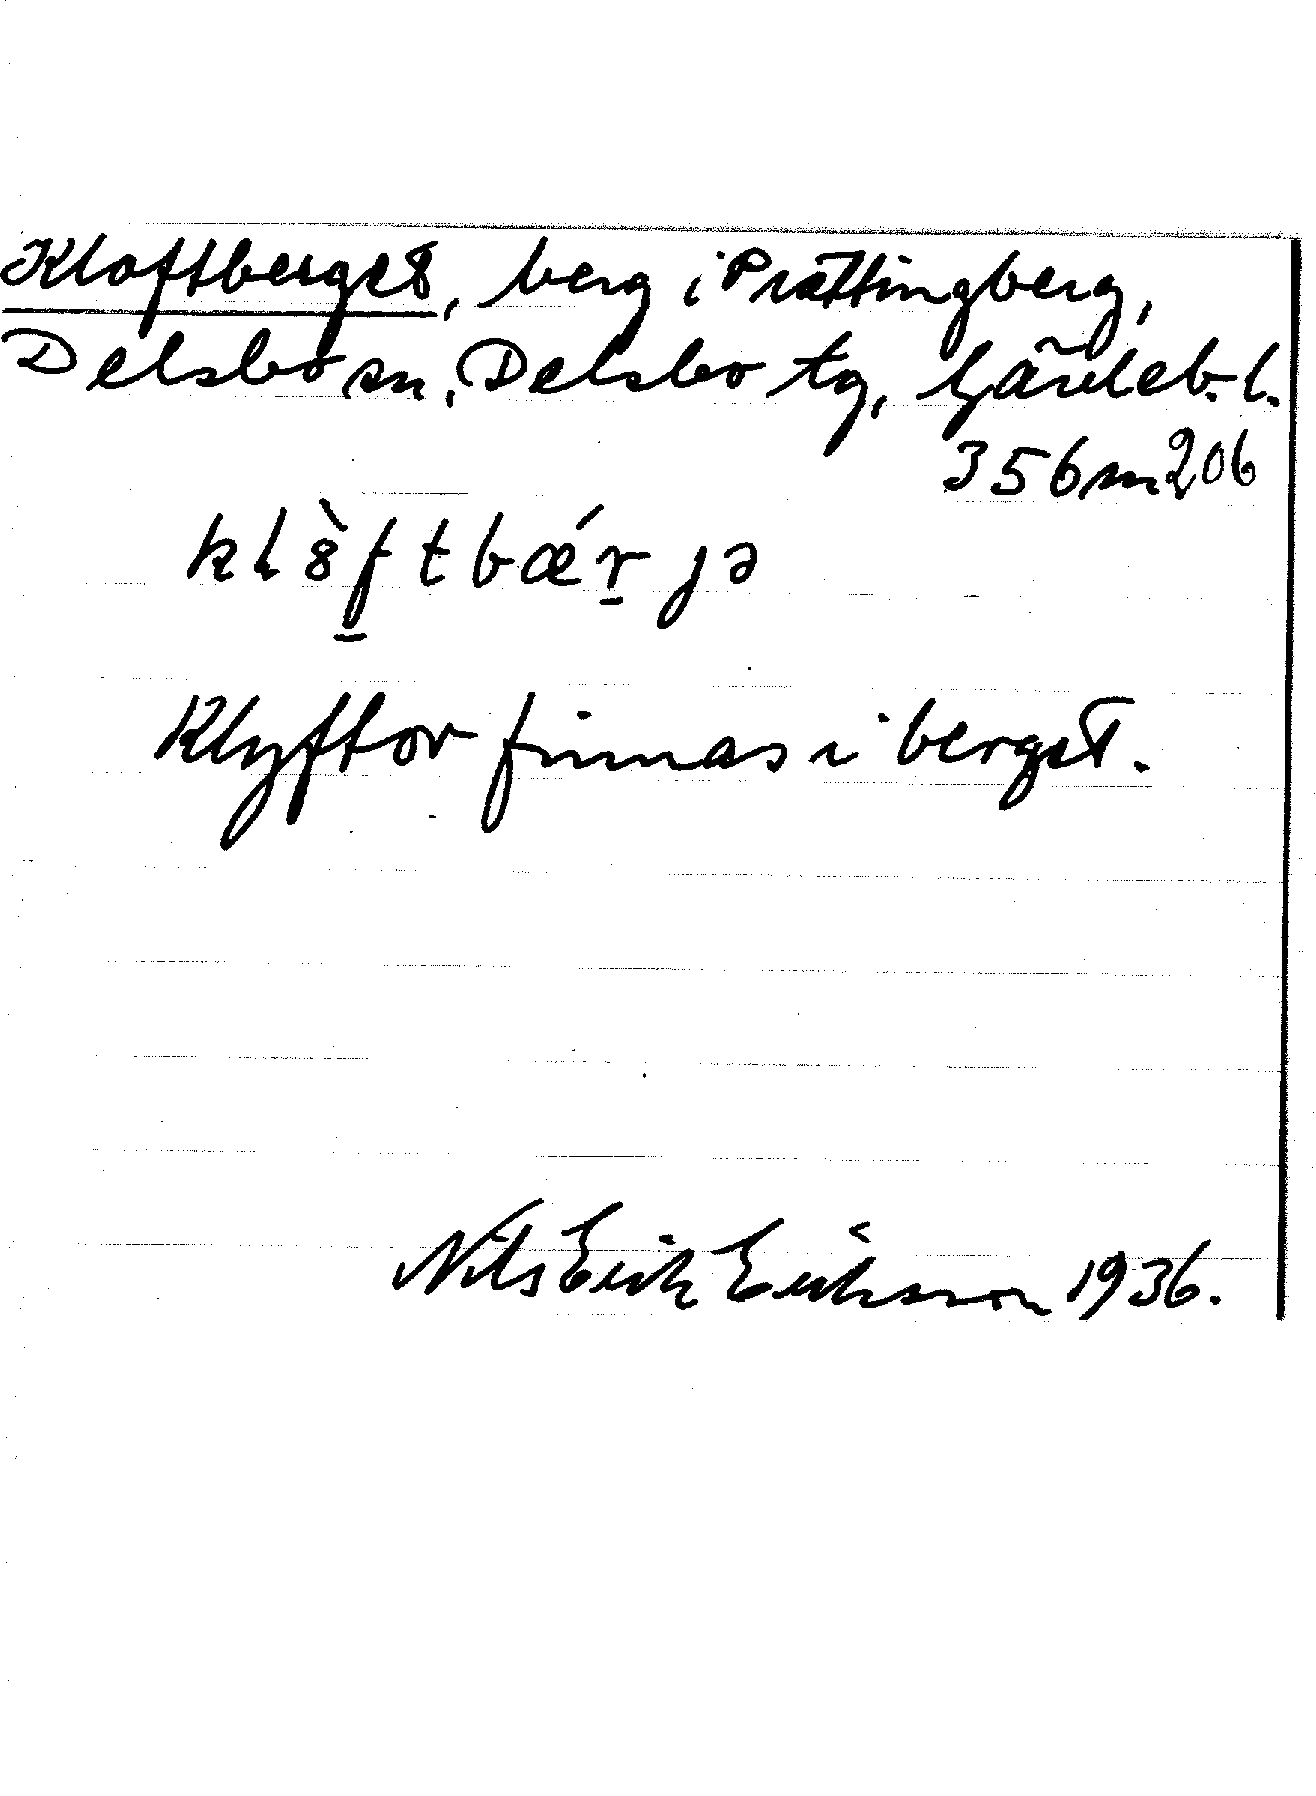 Kloftberget, berg i Prästingberg,
Delsbo sn, Delsbo tg, Gävleb. l.
356m206
kl8̀f̲tbǽr̲jə
Klyftor finnas i berget.
Nils Erik Eriksson 1936.